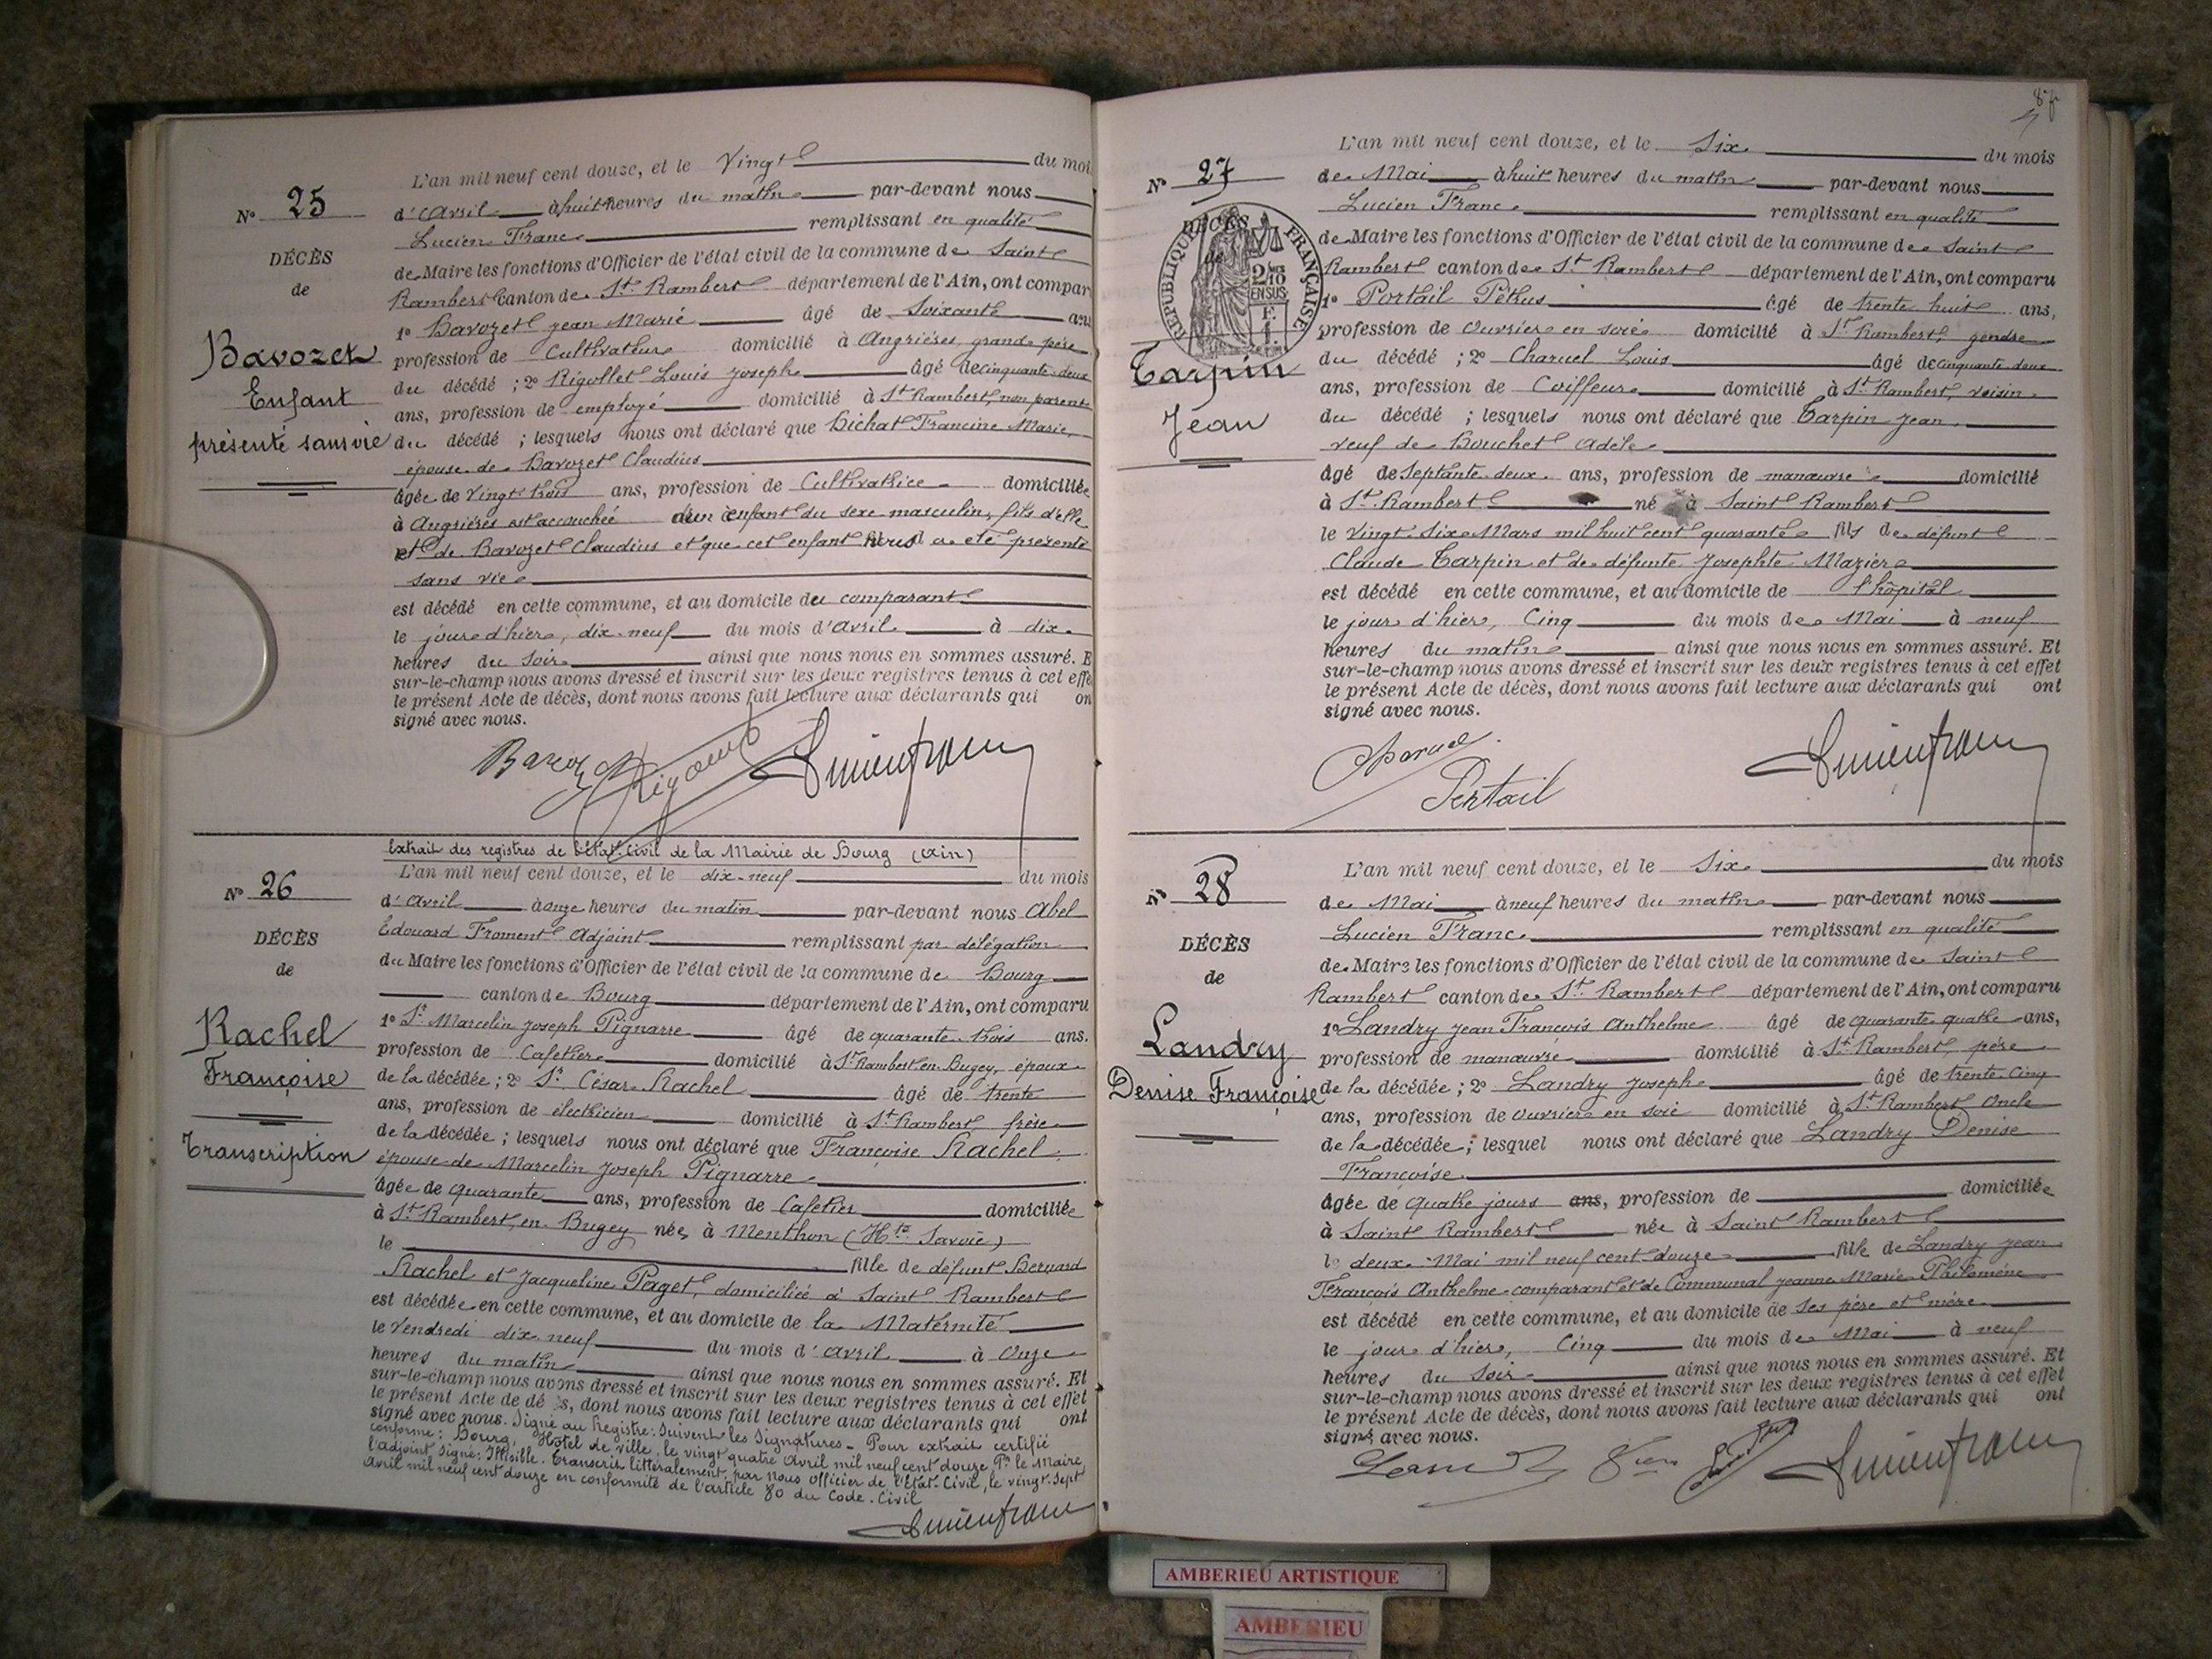 L'an mil neuf cent douze, et le Vingt du moi
N° 25
d'avril à huit heures du matin par-devant nous
Lucien Franc remplissant en qualité
DÉCÈS
de Maire les fonctions d'Officier de l'état civil de la commune de Saint
de
Rambert canton de St Rambert département de l'Ain, ont compar
1° Bavozet jean Marie âgé de Soixante ans
Bavozet
profession de Cultivateur domicilié à Angrières, grand père
du décédé ; 2° Rigollet Louis Joseph âgé de cinquante deux
Enfant
ans, profession de employé domicilié à St Rambert, non parent
présenté sans vie
du décédé ; lesquels nous ont déclaré que Bichat Francine Marie,
épouse de Bavozet Claudius
âgée de Vingt trois ans, profession de Cultivatrice domiciliée
à Angrières est accouchée d'un enfant du sexe masculin, fils d'elle
et de Bavozet Claudius et que cet enfant a été présenté
sans vie
est décédé en cette commune, et au domicile du comparant
le jour d'hier, dix-neuf du mois d'avril à dix
heures du soir ainsi que nous nous en sommes assuré. E
sur-le-champ nous avons dressé et inscrit sur les deux registres tenus à cet effe
le présent Acte de décès, dont nous avons fait lecture aux déclarants qui on
signé avec nous.
Extrait des registres de l'état-Civil de la Mairie de Bourg (Ain)
L'an mil neuf cent douze, et le dix-neuf du mois
N° 26
d'avril à onze heures du matin par-devant nous Abel
Edouard Froment Adjoint remplissant par délégation
DÉCÈS
du Maire les fonctions d'Officier de l'état civil de la commune de Bourg
de
canton de Bourg département de l'Ain, ont comparu
1° Sr Marcelin Joseph Pignarre âgé de quarante trois ans.
Rachel
profession de Cafetier domicilié à St Rambert en Bugey, époux
Françoise
de la décédée ; 2° Sr César Rachel âgé de trente
ans, profession de électricien domicilié à St Rambert frère
de la décédée ; lesquels nous ont déclaré que Françoise Rachel,
Transcription
épouse de Marcelin Joseph Pignarre
âgée de quarante ans, profession de Cafetier domiciliée
à St Rambert, en Bugey née à Menthon (Hte Savoie)
le fille de défunt Bernard
Rachel et Jacqueline Paget, domiciliée à Saint Rambert
est décédée en cette commune, et au domicile de la Maternité
le Vendredi dix-neuf du mois d'avril à Onze
heures du matin ainsi que nous nous en sommes assuré. Et
sur-le-champ nous avons dressé et inscrit sur les deux registres tenus à cet effet
le présent Acte de dé s, dont nous avons fait lecture aux déclarants qui ont
signé avec nous. Signé au Registre: Suivent les Signatures - Pour extrait certifié
conforme: Bourg, Hôtel de ville, le vingt quatre Avril mil neuf cent douze Pr le Maire,
l'adjoint Signé: Illisible. Transcrit littéralement par nous officier de l'Etat-Civil, le vingt-sept
avril mil neuf cent douze en conformité de l'article 80 du Code-Civil
L'an mil neuf cent douze, et le Six du mois
N° 27
de Mai à huit heures du matin par-devant nous
Lucien Franc remplissant en qualité
DÉCÈS
de
RÉPUBLIQUE FRANÇAISE
2/10 EN SUS
de Maire les fonctions d'Officier de l'état civil de la commune de Saint
Rambert canton de St Rambert département de l'Ain, ont comparu
1° Portail Pétrus âgé de trente huit ans,
profession de ouvrier en soie domicilié à St Rambert, gendre
Tarpin
du décédé ; 2° Charuel Louis âgé de cinquante deux
ans, profession de Coiffeur domicilié à St Rambert, voisin
Jean
du décédé ; lesquels nous ont déclaré que Tarpin Jean
veuf de Bouchet Adèle
âgé de Septante deux ans, profession de manœuvre domicilié
à St Rambert né à Saint Rambert
le vingt Six Mars mil huit cent quarante fils de défunt
Claude Tarpin et de défunte Josephte Mazier
est décédé en cette commune, et au domicile de l'hôpital
le jour d'hier, Cinq du mois de Mai à neuf
heures du matin ainsi que nous nous en sommes assuré. Et
sur-le-champ nous avons dressé et inscrit sur les deux registres tenus à cet effet
le présent Acte de décès, dont nous avons fait lecture aux déclarants qui ont
signé avec nous.
Charuel
Portail
L'an mil neuf cent douze, et le Six du mois
N° 28
de Mai à neuf heures du matin par-devant nous
Lucien Franc remplissant en qualité
DÉCÈS
de Maire les fonctions d'Officier de l'état civil de la commune de Saint
de
Rambert canton de St Rambert département de l'Ain, ont comparu
1° Landry jean François Anthelme âgé de quarante quatre ans,
Landry
profession de manœuvre domicilié à St Rambert, père
Denise Françoise
de la décédée ; 2° Landry Joseph âgé de trente cinq
ans, profession de ouvrier en soie domicilié à St Rambert Oncle
de la décédée ; lesquel nous ont déclaré que Landry Denise
Françoise
âgée de quatre jours ans, profession de domiciliée
à Saint Rambert née à Saint Rambert
le deux Mai mil neuf cent douze fille de Landry jean
François Anthelme comparant et de Communal jeanne Marie Philomène
est décédé en cette commune, et au domicile de ses père et mère
le jour d'hier, Cinq du mois de Mai à neuf
heures du Soir ainsi que nous nous en sommes assuré. Et
sur-le-champ nous avons dressé et inscrit sur les deux registres tenus à cet effet
le présent Acte de décès, dont nous avons fait lecture aux déclarants qui ont
signé avec nous.
AMBERIEU ARTISTIQUE
AMBERIEU